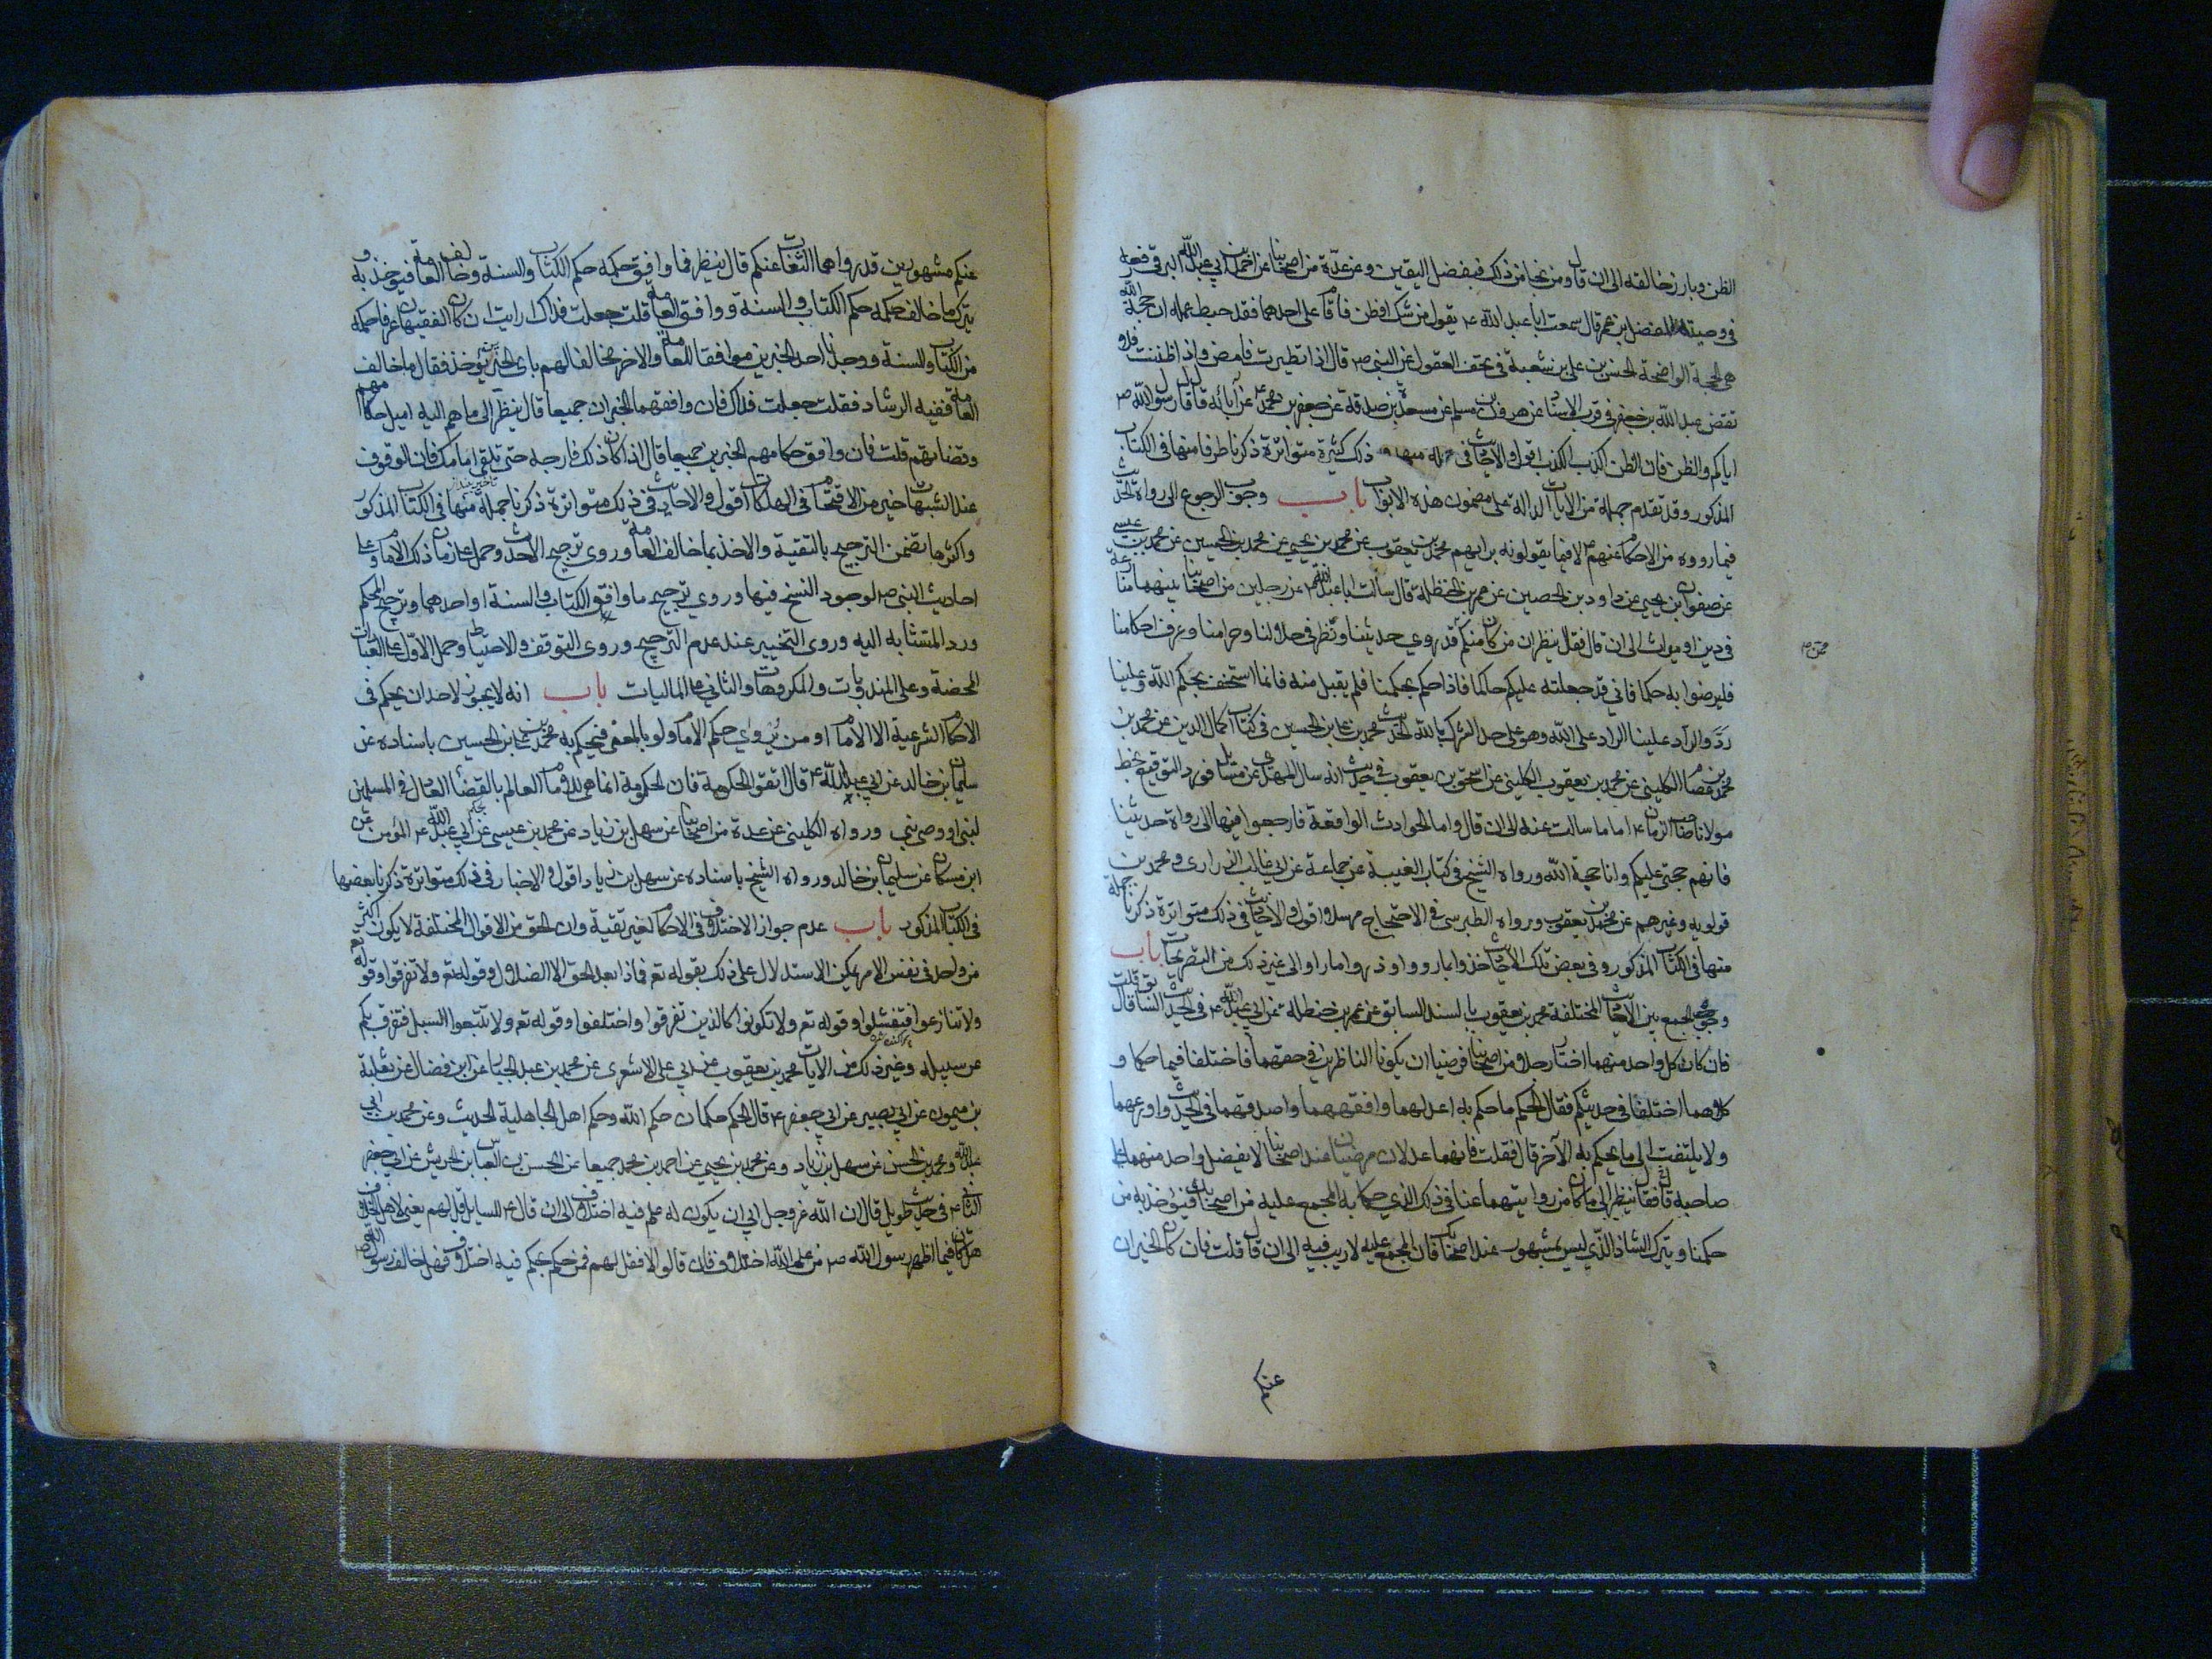 الظن وبارز خالقه الى ان قال ومن نجا من ذلك فبفضل اليقين وعن عدة من اصحابنا عن احمد بن ابي عبد الله البرقي رفعه
في وصية المفضل بن عمر قال سمعت ابا عبد الله ع يقول من شك او ظن فاقام على احدهما فقد حبط عمله ان حجة الله
هي الحجة الواضحة الحسن بن علي بن شعبة في تحف العقول عن النبي ص قال اذا تطيرت فامض واذا ظننت فلا
تقض عبد الله بن جعفر في قرب الاسناد عن هرون بن مسلم عن مسعدة بن صدقة عن جعفر بن محمد ع عن آبائه قال قال رسول الله ص
اياكم والظن فان الظن اكذب الكذب اقول والاحاديث في ذلك كثيرة متواترة ذكرنا طرفا منها في الكتاب
المذكور وقد تقدم جملة من الايات الدالة على مضمون هذه الابواب باب وجوب الرجوع الى رواة الحديث
فيما رووه من الاحكام عنهم ع لا فيما يقولونه برايهم محمد بن يعقوب عن محمد بن يحيى عن محمد بن الحسين عن محمد بن عيسى
عن صفوان بن يحيى عن داود بن الحصين عن عمر بن حنظلة قال سالت ابا عبد الله ع عن رجلين من اصحابنا بينهما منازعة
في دين او ميراث الى ان قال فقال ينظران من كان منكم قد روي حديثنا ونظر في حلالنا وحرامنا وعرف احكامنا
فليرضوا به حكما فاني قد جعلته عليكم حاكما فاذا حكم بحكمنا فلم يقبل منه فانما استخف بحكم الله وعلينا
رد والراد علينا الراد على الله وهو على حد الشرك بالله الحديث محمد بن علي بن الحسين في كتاب اكمال الدين عن محمد بن
محمد بن عصام الكليني عن محمد بن يعقوب الكليني عن اسحق بن يعقوب في حديث انه سال المهدي عن مسائل فورد التوقيع بخط
مولانا صاحب الزمان ع اما ما سالت عنه الى ان قال واما الحوادث الواقعة فارجعوا فيها الى رواة حديثنا
فانهم حجتي عليكم وانا حجة الله ورواه الشيخ في كتاب الغيبة عن جماعة عن ابي غالب الزراري ومحمد بن
قولويه وغيرهم عن محمد بن يعقوب ورواه الطبرسي في الاحتجاج مرسلا اقول والاحاديث في ذلك متواترة ذكرنا جملة
منها في الكتاب المذكور وفي بعض تلك الاحاديث خذوا بما رووا وذروا ما راوا الى غير ذلك من التصريحات باب
وجوه الجمع بين الاحاديث المختلفة محمد بن يعقوب بالسند السابق عن عمر بن حنظلة عن ابي عبد الله ع في الحديث السابق قال قلت
فان كان كل واحد منهما اختار رجلا من اصحابنا فرضيا ان يكونا الناظرين في حقهما فاختلفا فيما حكما و
كلاهما اختلفا في حديثكم فقال الحكم ما حكم به اعدلهما وافقههما واصدقهما في الحديث واورعهما
ولا يلتفت الى ما يحكم به الآخر قال فقلت فانهما عدلان مرضيان عند اصحابنا لا يفضل واحد منهما على
صاحبه قال فقال ينظر الى ما كان من روايتهما عنا في ذلك الذي حكما به المجمع عليه من اصحابك فيؤخذ به من
حكمنا ويترك الشاذ الذي ليس بمشهور عند اصحابك فان المجمع عليه لا ريب فيه الى ان قال قلت فان كان الخبران
عنكم
عنكم مشهورين قد رواهما الثقات عنكم قال ينظر فما وافق حكمه حكم الكتاب والسنة وخالف العامة فيؤخذ به و
يترك ما خالف حكمه حكم الكتاب والسنة ووافق العامة قلت جعلت فداك ارايت ان كان الفقيهان عرفا حكمه
من الكتاب والسنة ووجدنا احد الخبرين موافقا للعامة والاخر مخالفا لهم باي الخبرين يؤخذ فقال ما خالف
العامة ففيه الرشاد فقلت جعلت فداك فان وافقهما الخبران جميعا قال ينظر الى ما هم اليه اميل حكامهم
وقضاتهم قلت فان وافق حكامهم الخبرين جميعا قال اذا كان ذلك فارجه حتى تلقى امامك فان الوقوف
عند الشبهات خير من الاقتحام في الهلكات اقول والاحاديث في ذلك متواترة ذكرنا جملة منها في الكتاب المذكور
واكثرها تضمن الترجيح بالتقية والاخذ بما خالف العامة وروي ترجيح الاحدث وحمل على زمان ذلك الامام وعلى
احاديث النبي ص لوجود النسخ فيها وروي ترجيح ما وافق الكتاب والسنة او احدهما وترجيح المحكم
ورد المتشابه اليه وروى التخيير عند عدم الترجيح وروى التوقف والاحتياط وحمل الاول على العبادات
المحضة وعلى المندوبات والمكروهات والثاني على الماليات باب انه لا يجوز لاحد ان يحكم في
الاحكام الشرعية الا الامام او من يروي حكم الامام ولو بالمعنى فيحكم به محمد بن علي بن الحسين باسناده عن
سليمان بن خالد عن ابي عبد الله ع قال اتقوا الحكومة فان الحكومة انما هي للامام العالم بالقضاء العادل في المسلمين
لنبي او وصي نبي ورواه الكليني عن عدة من اصحابنا عن سهل بن زياد عن محمد بن عيسى عن ابي عبد الله المؤمن عن
ابن مسكان عن سليمان بن خالد ورواه الشيخ باسناده عن سهل بن زياد اقول والاخبار في ذلك متواترة ذكرنا بعضها
في الكتاب المذكور باب عدم جواز الاختلاف في الاحكام لغير تقية وان الحق من الاقوال المختلفة لا يكون اكثر
من واحد في نفس الامر يمكن الاستدلال على ذلك بقوله تع فماذا بعد الحق الا الضلال وقوله تع ولا تفرقوا وقوله تع
ولا تنازعوا فتفشلوا وقوله تع ولا تكونوا كالذين تفرقوا واختلفوا وقوله تع ولا تتبعوا السبل فتفرق بكم
عن سبيله وغير ذلك من الايات محمد بن يعقوب عن ابي علي الاشعري عن محمد بن عبد الجبار عن ابن فضال عن ثعلبة
بن ميمون عن ابي بصير عن ابي جعفر ع قال الحكم حكمان حكم الله وحكم اهل الجاهلية الحديث وعن محمد بن ابي
عبد الله ومحمد بن الحسن عن سهل بن زياد وعن محمد بن يحيى عن احمد بن محمد جميعا عن الحسن بن العباس بن الحريش عن ابي جعفر
الثاني ع في حديث طويل قال ان الله عز وجل ابي ان يكون له علم فيه اختلاف الى ان قال ع للسايل قل لهم يعني لاهل الخلاف
هل كان فيما اظهر رسول الله ص من علم الله اختلاف فان قالوا لا فقل لهم فمن حكم بحكم فيه اختلاف فهل خالف رسول الله ص